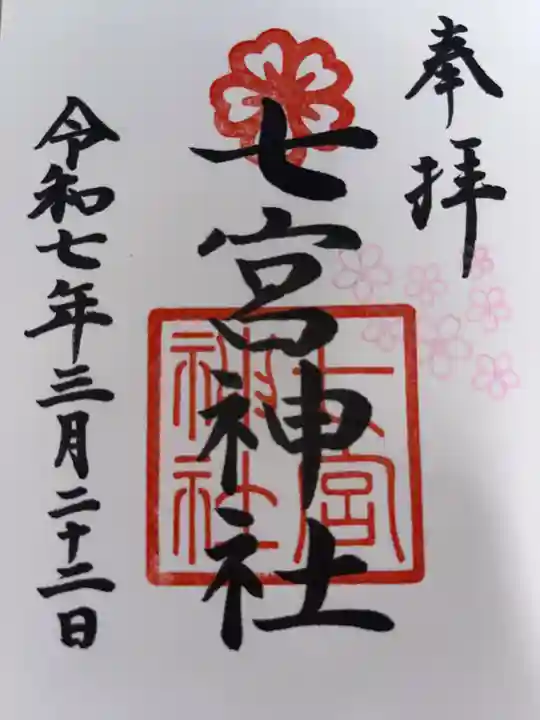 奉拝
七宮神社
七宮
神社
令和七年三月二十二日